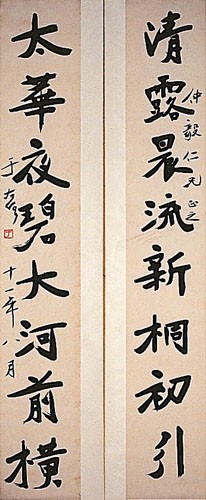 清露晨流新桐初引
仲毅仁兄正之
太華夜碧大河前橫
于右任
十一年八月